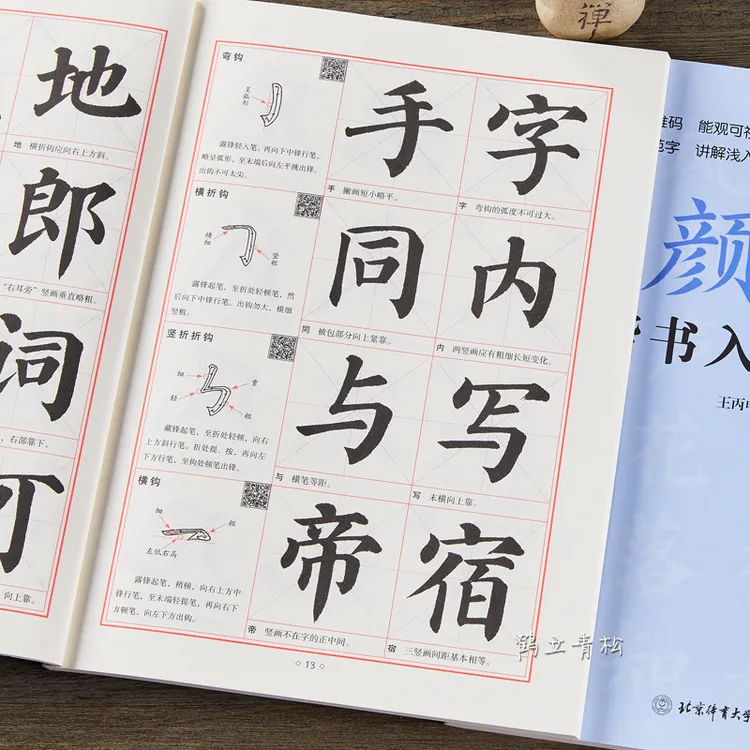 禅
地
地 横折钩应向右上方斜。
郎
“右耳旁”竖画垂直略粗。
词
右部靠下。
可
向上靠。
弯钩
呈弧形
露锋轻入笔，再向下中锋行笔，
略呈弧形，至末端后向左平挑出锋。
出钩不可太尖。
手
字
手 撇画短小略平。
字 弯钩的弧度不可过大。
横折钩
横细
竖粗
露锋起笔，至折处轻顿笔，然
后向下中锋行笔。出钩勿大，横细
竖粗。
同
内
同 被包部分向上紧靠。
内 两竖画应有粗细长短变化。
竖折折钩
细
重
轻
粗
藏锋起笔，至折处轻顿，向右
上方斜行笔，折处提、按，再向左
下方行笔，至钩处顿笔出锋。
与
写
与 横笔等距。
写 末横向上靠。
横钩
细
粗
左低右高
露锋起笔，稍顿，向右上方中
锋行笔，至末端轻提笔，再向右下
方顿笔，向左下方出钩。
帝
宿
帝 竖画不在字的正中间。
宿 三竖画间距基本相等。
13
维码 能观可
范字 讲解浅入
颜
楷书入
王丙申
北京体育大学
鹤立青松